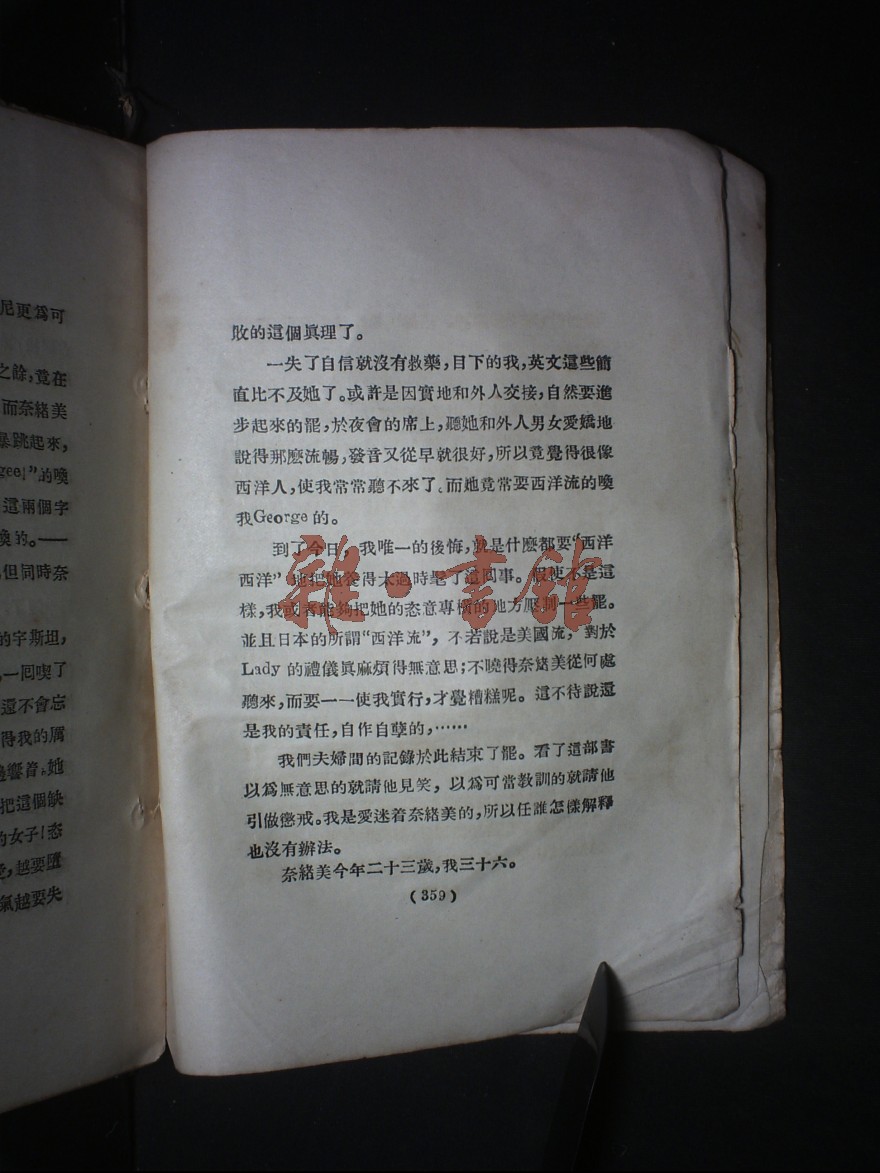 尼更爲可
之餘,竟在
而奈緒美
暴跳起來,
gee!”的喚
這兩個字
喚的。——
但同時奈
的宇斯坦,
一囘喫了
還不會忘
得我的厲
響音。她
把這個缺
的女子!恣
越要墮
氣越要失
敗的這個眞理了。
一失了自信就沒有救藥,目下的我,英文這些簡
直比不及她了。或許是因實地和外人交接,自然要進
步起來的罷,於夜會的席上,聽她和外人男女愛嬌地
說得那麽流暢,發音又從早就很好,所以竟覺得很像
西洋人,使我常常聽不來了。而她竟常要西洋流的喚
我George 的。
到了今日,我唯一的後悔,就是什麽都要“西洋
西洋”地把她養得太過時髦了這囘事。假使不是這
樣,我或者能夠把她的恣意專橫的地方壓制一些罷。
並且日本的所謂“西洋流”,不若說是美國流,對於
Lady 的禮儀眞麻煩得無意思;不曉得奈緒美從何處
聽來,而要一一使我實行,才覺糟糕呢。這不待說還
是我的責任,自作自孽的,⋯⋯
我們夫婦間的記錄於此結束了罷。看了這部書
以爲無意思的就請他見笑,以爲可當敎訓的就請他
引做懲戒。我是愛迷着奈緒美的,所以任誰怎樣解釋
也沒有辦法。
奈緒美今年二十三歲,我三十六。
(359)
雜·書館